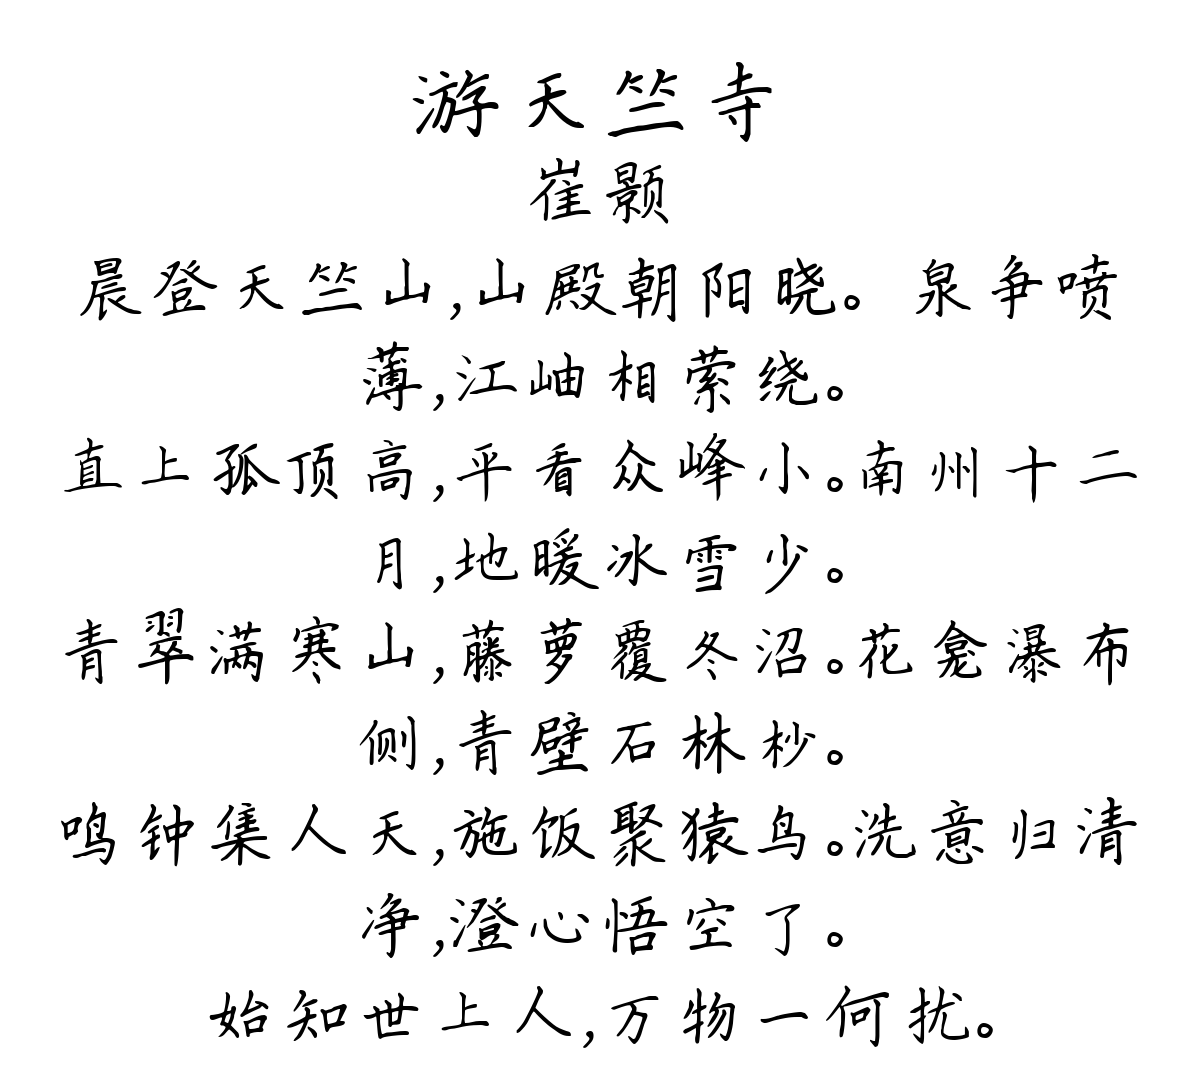 游天竺寺
崔颢
晨登天竺山,山殿朝阳晓。泉争喷
薄,江岫相萦绕。
直上孤顶高,平看众峰小。南州十二
月,地暖冰雪少。
青翠满寒山,藤萝覆冬沼。花龛瀑布
侧,青壁石林杪。
鸣钟集人天,施饭聚猿鸟。洗意归清
净,澄心悟空了。
始知世上人,万物一何扰。